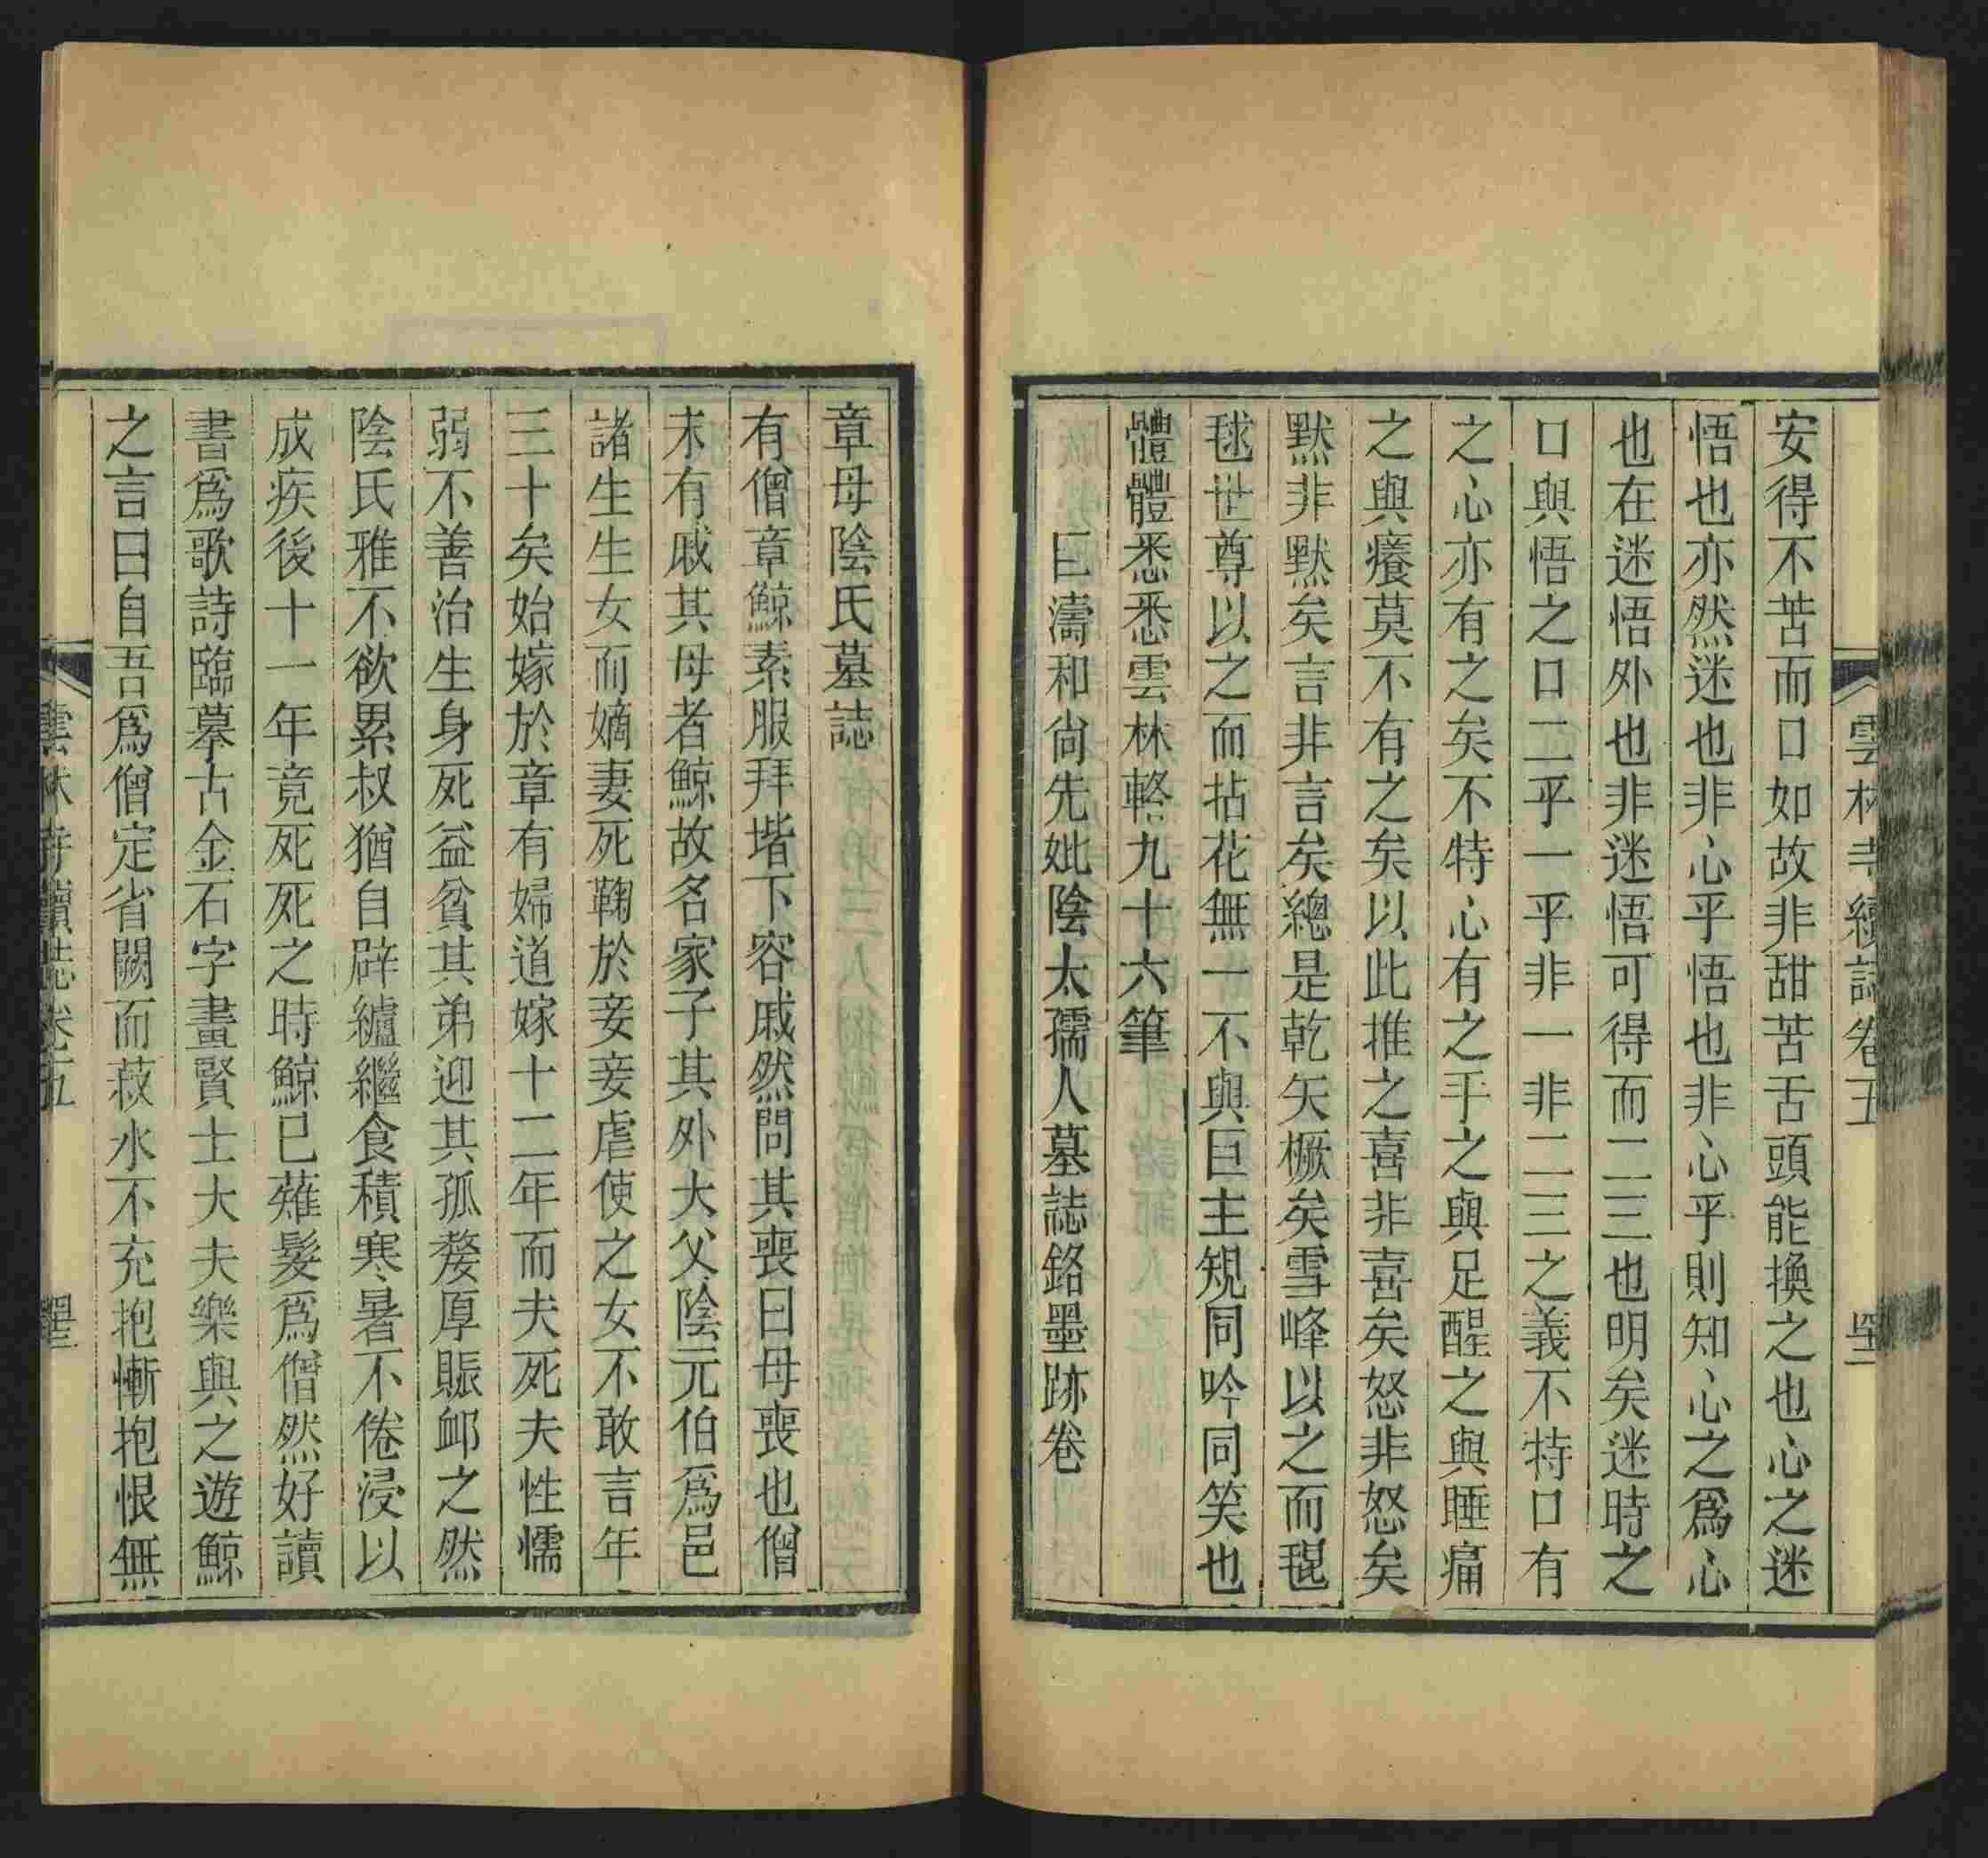 雲林寺續誌卷五
安得不苦而口如故非甜苦舌頭能換之也心之迷
悟也亦然迷也非心乎悟也非心乎則知心之爲心
也在迷悟外也非迷悟可得而二三也明矣迷時之
口與悟之口二乎一乎非一非二三之義不特口有
之心亦有之矣不特心有之手之與足醒之與睡痛
之與癢莫不有之矣以此推之喜非喜矣怒非怒矣
默非默矣言非言矣總是乾矢橛矣雪峰以之而輥
毬世尊以之而拈花無一不與巨主規同吟同笑也
體體悉悉雲林輅九十六筆
巨濤和尙先妣陰太孺人墓誌銘墨跡卷
章母陰氏墓誌
有僧章鯨素服拜堦下容戚然問其喪曰母喪也僧
未有戚其母者鯨故名家子其外大父陰元伯爲邑
諸生生女而嫡妻死鞠於妾妾虐使之女不敢言年
三十矣始嫁於章有婦道嫁十二年而夫死夫性懦
弱不善治生身死益貧其弟迎其孤嫠厚賑卹之然
陰氏雅不欲累叔猶自辟纑繼食積寒暑不倦浸以
成疾後十一年竟死死之時鯨已薙髮爲僧然好讀
書爲歌詩臨摹古金石字畫賢士大夫樂與之遊鯨
之言曰自吾爲僧定省闕而菽水不充抱慚抱恨無
雲林寺續誌卷五